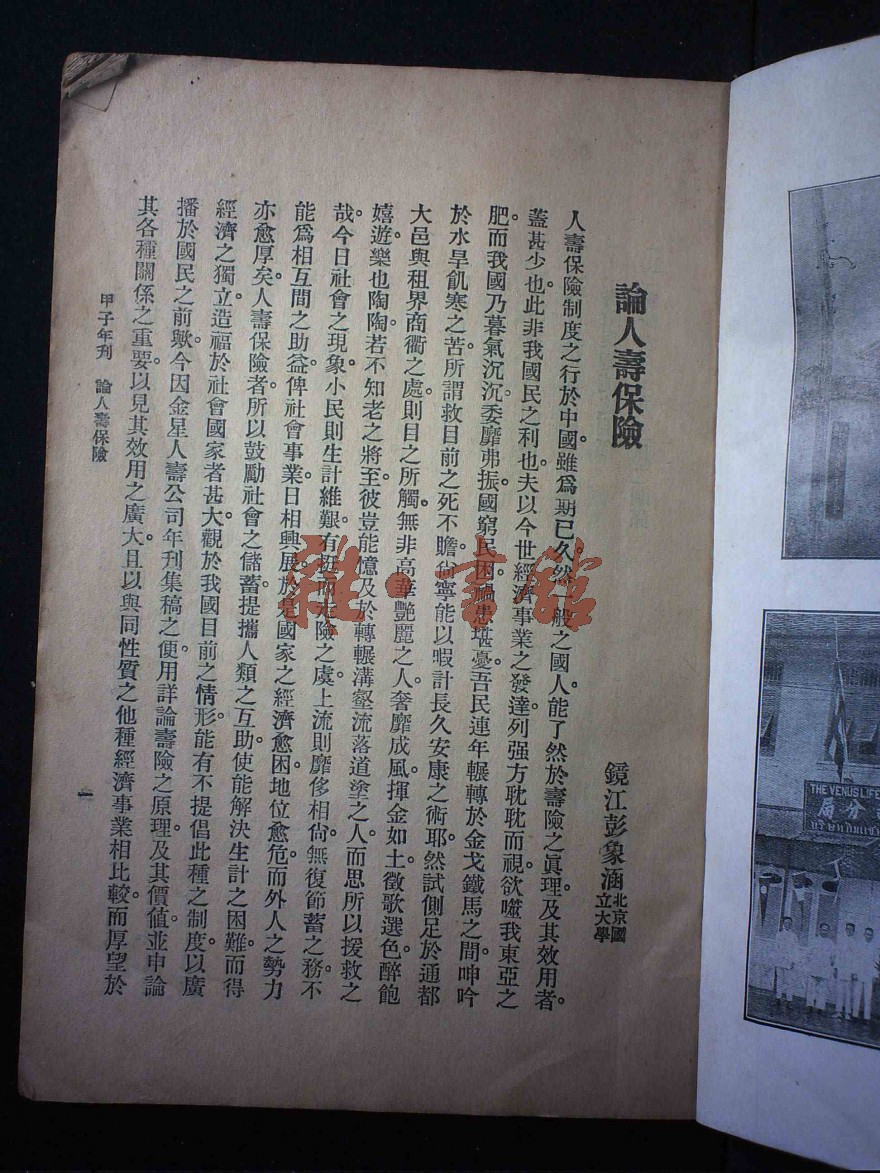 論人壽保險
鏡江彭象涵 北京國立大學
人壽保險制度之行於中國。雖爲期已久然一般之國人能了然於壽險之眞理及其效用者。
蓋甚少也。此非我國民之利也。夫以今世經濟事業之發達列强方耽耽而視欲噬我東亞之
肥。而我國乃暮氣沉沉。委靡弗振國窮民困。患堪憂。吾民連年輾轉於金戈鐵馬之間。呻吟
於水旱飢寒之苦。所謂救目前之死不贍尙寧能以暇計長久安康之術耶。然試側足於通都
大邑與租界商衢之處。則目之所觸。無非高華艷麗之人。奢靡成風。揮金如土。徵歌選色。醉飽
嬉遊。樂也陶陶。若不知老之將至。彼豈能憶及於轉輾溝壑流落道塗之人。而思所以援救之
哉。今日社會之現象。小民則生計維艱。有挺而走險之虞。上流則靡侈相尙。無復節蓄之務。不
能爲相互間之助益。俾社會事業日相興展。於是國家之經濟愈困。地位愈危。而外人之勢力
亦愈厚矣。人壽保險者。所以鼓勵社會之儲蓄。提攜人類之互助。使能解決生計之困難。而得
經濟之獨立。造福於社會國家者甚大。觀於我國目前之情形。能有不提倡此種之制度。以廣
播於國民之前歟。今因金星人壽公司年刊集稿之便。用詳論壽險之原理及其價值。並申論
其各種關係之重要。以見其效用之廣大。且以與同性質之他種經濟事業相比較。而厚望於
甲子年刊 論人壽保險
一
雅·書館
THE VENUS LIFE
分局